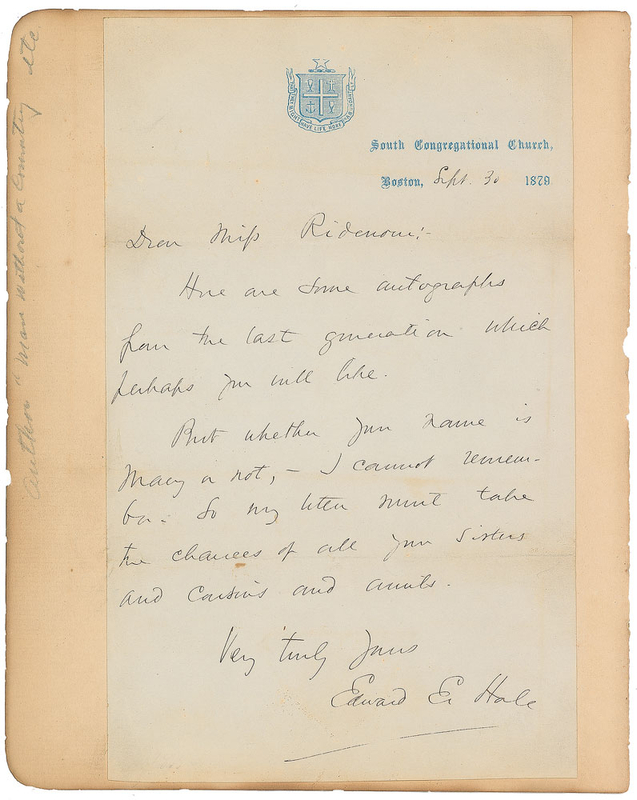 South Congregational Church,
Boston, Sept. 30 1879
Dear Miss Ridenour:-
Here are some autographs
from the last generation which
perhaps you will like.
But whether your name is
Mary or not, – I cannot remem-
ber. So my letter must take
the chances of all your sisters
and cousins and aunts.
Very truly yours
Edward E. Hale
Author "Man without a Country etc